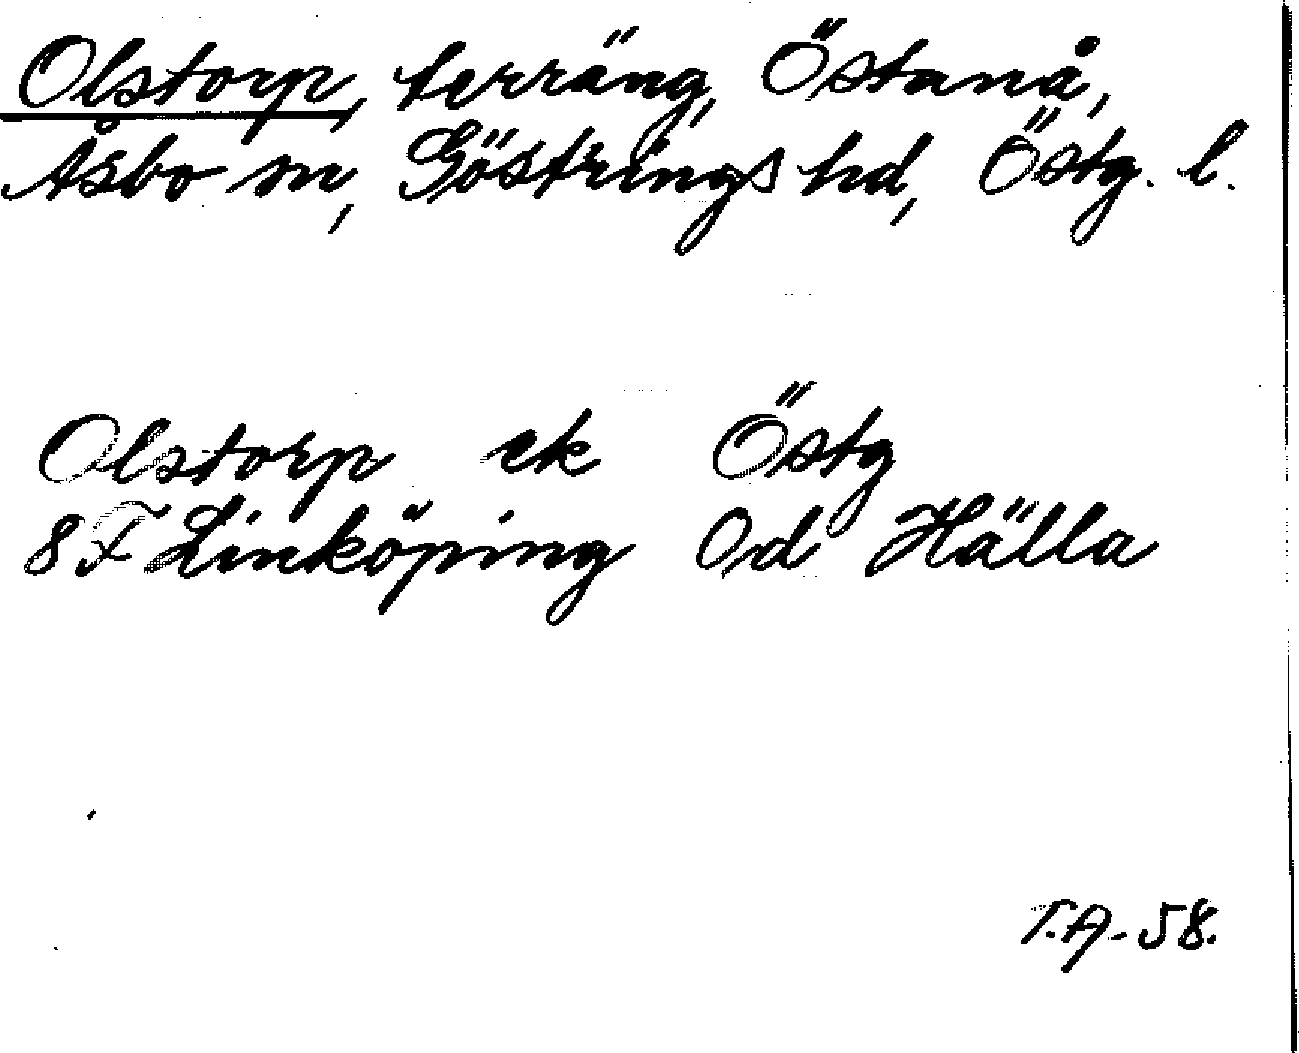 Olstorp, terräng, Östanå,
Åsbo sn, Göstrings hd, Östg. l.
Olstorp ek Östg
8F Linköping Od Hälla
T.A. 58.